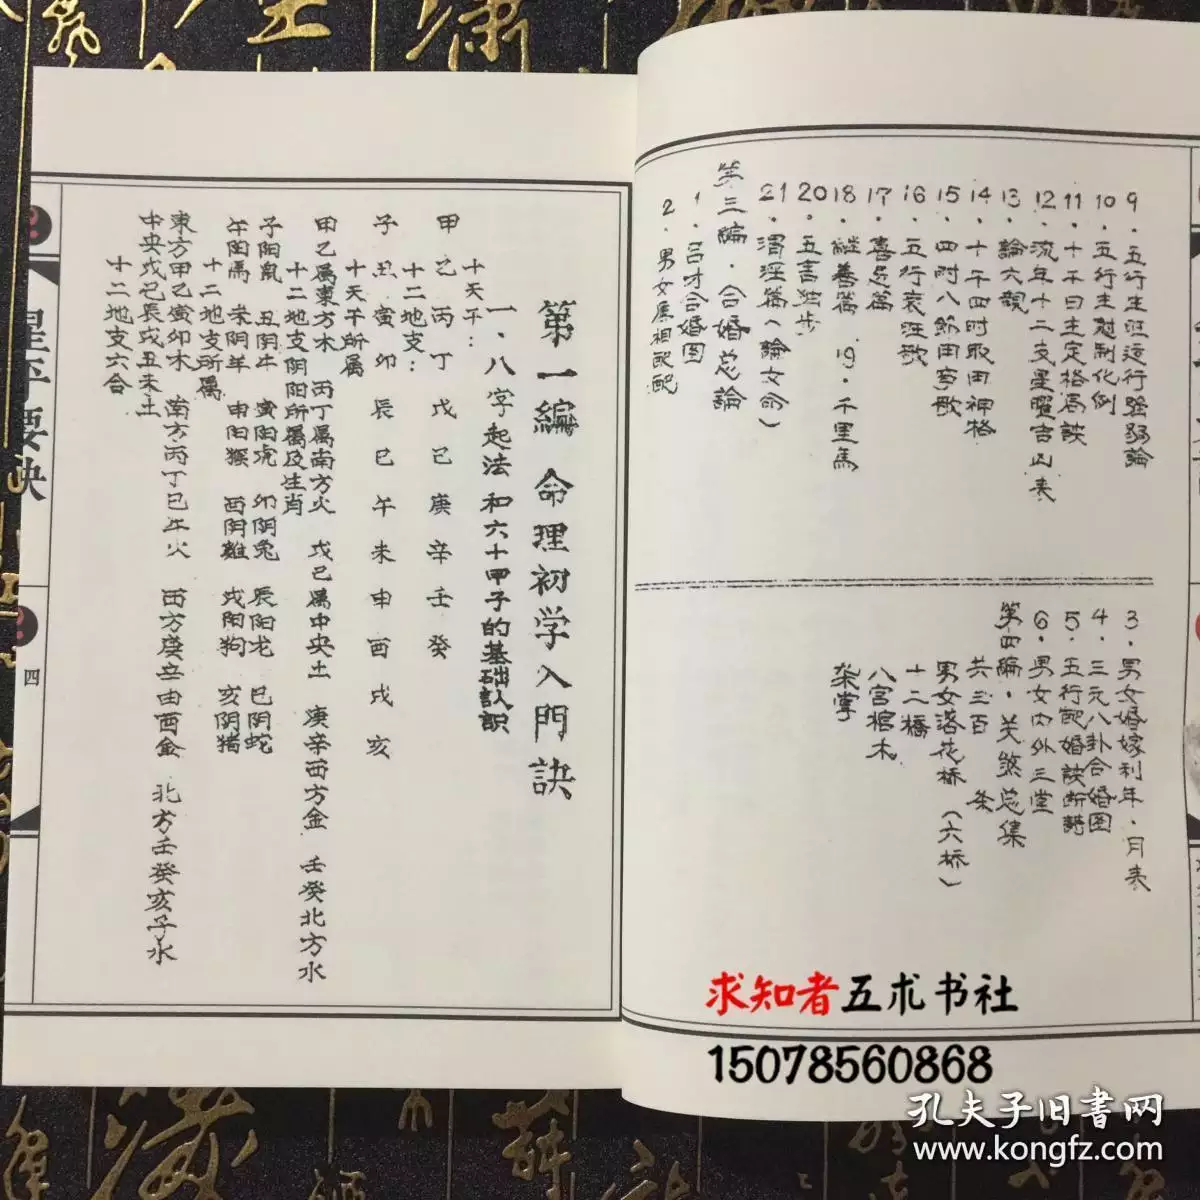 9．五行生旺运行强弱論
10．五行生尅制化例
11．十干日主定格局訣
12．流年十二支星曜吉凶表
13．論六親
14．十干四时取用神格
15．四时八節用事歌
16．五行衰旺歌
17．喜忌篇
18．继善篇 19．千里馬
20．五言独步
21．渭泾篇（論女命）
第三編．合婚总論
1．吕才合婚图
2．男女属相配配
3．男女婚嫁利年．月表
4．三元八卦合婚图
5．五行配婚訣断語
6．男女内外三堂
第四編．关煞总集
共三百 条
男女落花桥（六桥）
十二橋
八宫棺木
架掌
第一編 命理初学入門訣
一．八字起法和六十甲子的基础认识
十天干：
甲乙丙丁戊己庚辛壬癸
十二地支：
子丑寅卯辰巳午未申酉戌亥
十天干所属
甲乙属東方木 丙丁属南方火 戊己属中央土 庚辛西方金 壬癸北方水
十二地支阴阳所属及生肖
子阳鼠 丑阴牛 寅阳虎 卯阴兔 辰阳龙 巳阴蛇
午阳馬 未阴羊 申阳猴 酉阴雞 戌阳狗 亥阴猪
十二地支所属
東方甲乙寅卯木 南方丙丁巳午火 西方庚辛申酉金 北方壬癸亥子水
中央戊己辰戌丑未土
十二地支六合
星平要诀
四
求知者五术书社
15078560868
孔夫子旧書网
www.kongfz.com